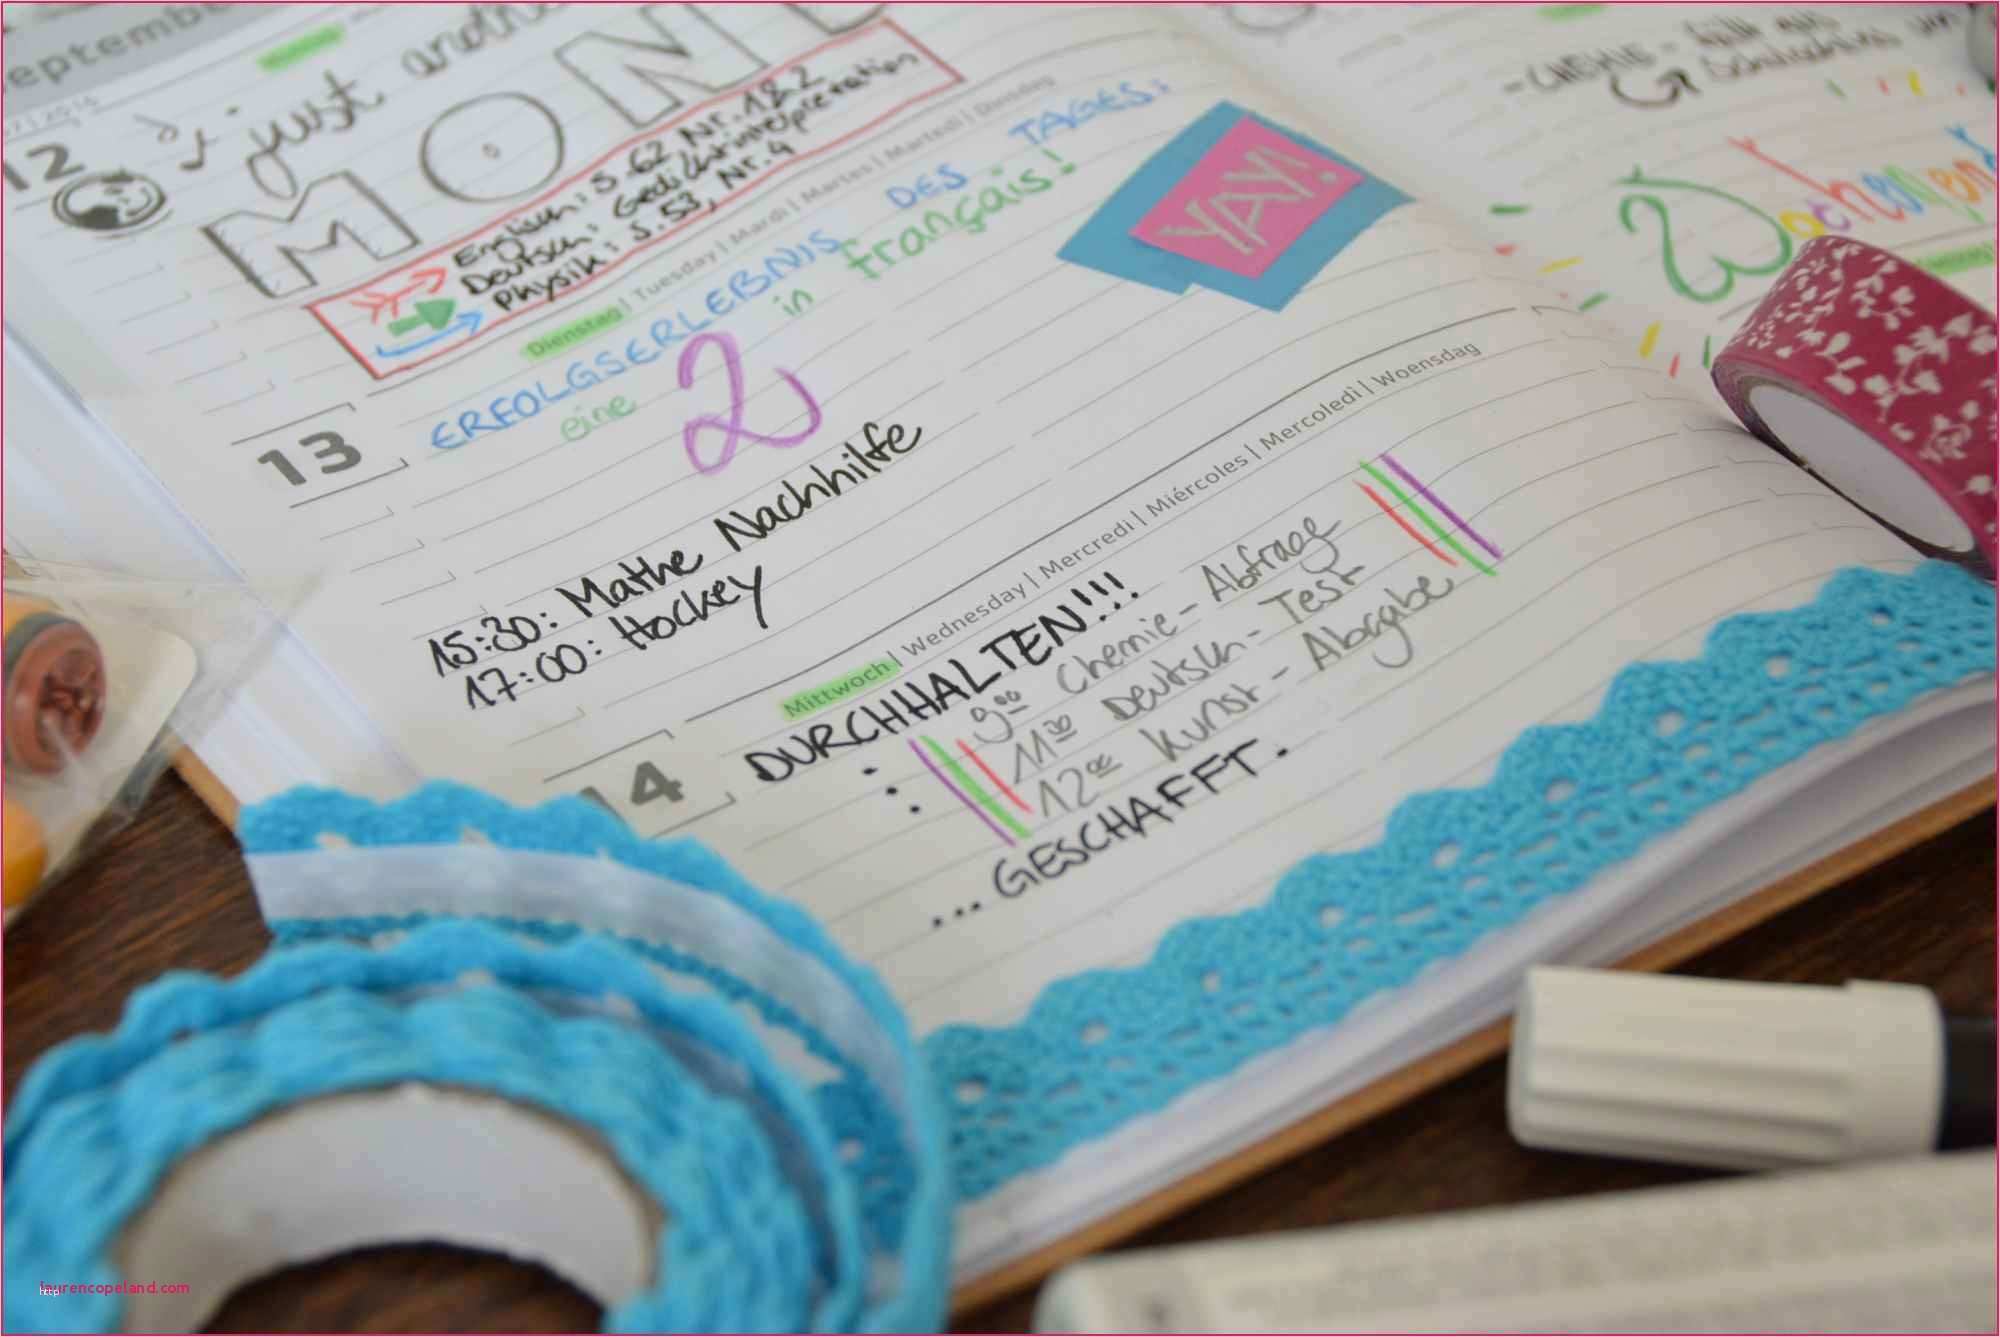 eptembe
12
just
MON
Englisch: S. 62, Nr. 1&2
Deutsch: Gedichtinterpretation
Physik: S. 53, Nr. 4
Dienstag | Tuesday | Mardi | Martes | Martedì | Dinsdag
13
ERFOLGSERLEBNIS DES TAGES:
eine 2 in français!
YAY!
15:30: Mathe Nachhilfe
17:00: Hockey
Mittwoch | Wednesday | Mercredi | Miércoles | Mercoledì | Woensdag
14
DURCHHALTEN!!!
9:00 Chemie - Abfrage
11:30 Deutsch - Test
12:00 Kunst - Abgabe
... GESCHAFFT.
- CHEMIE - fällt aus
Wochenend
Samstag
laurencopeland.com